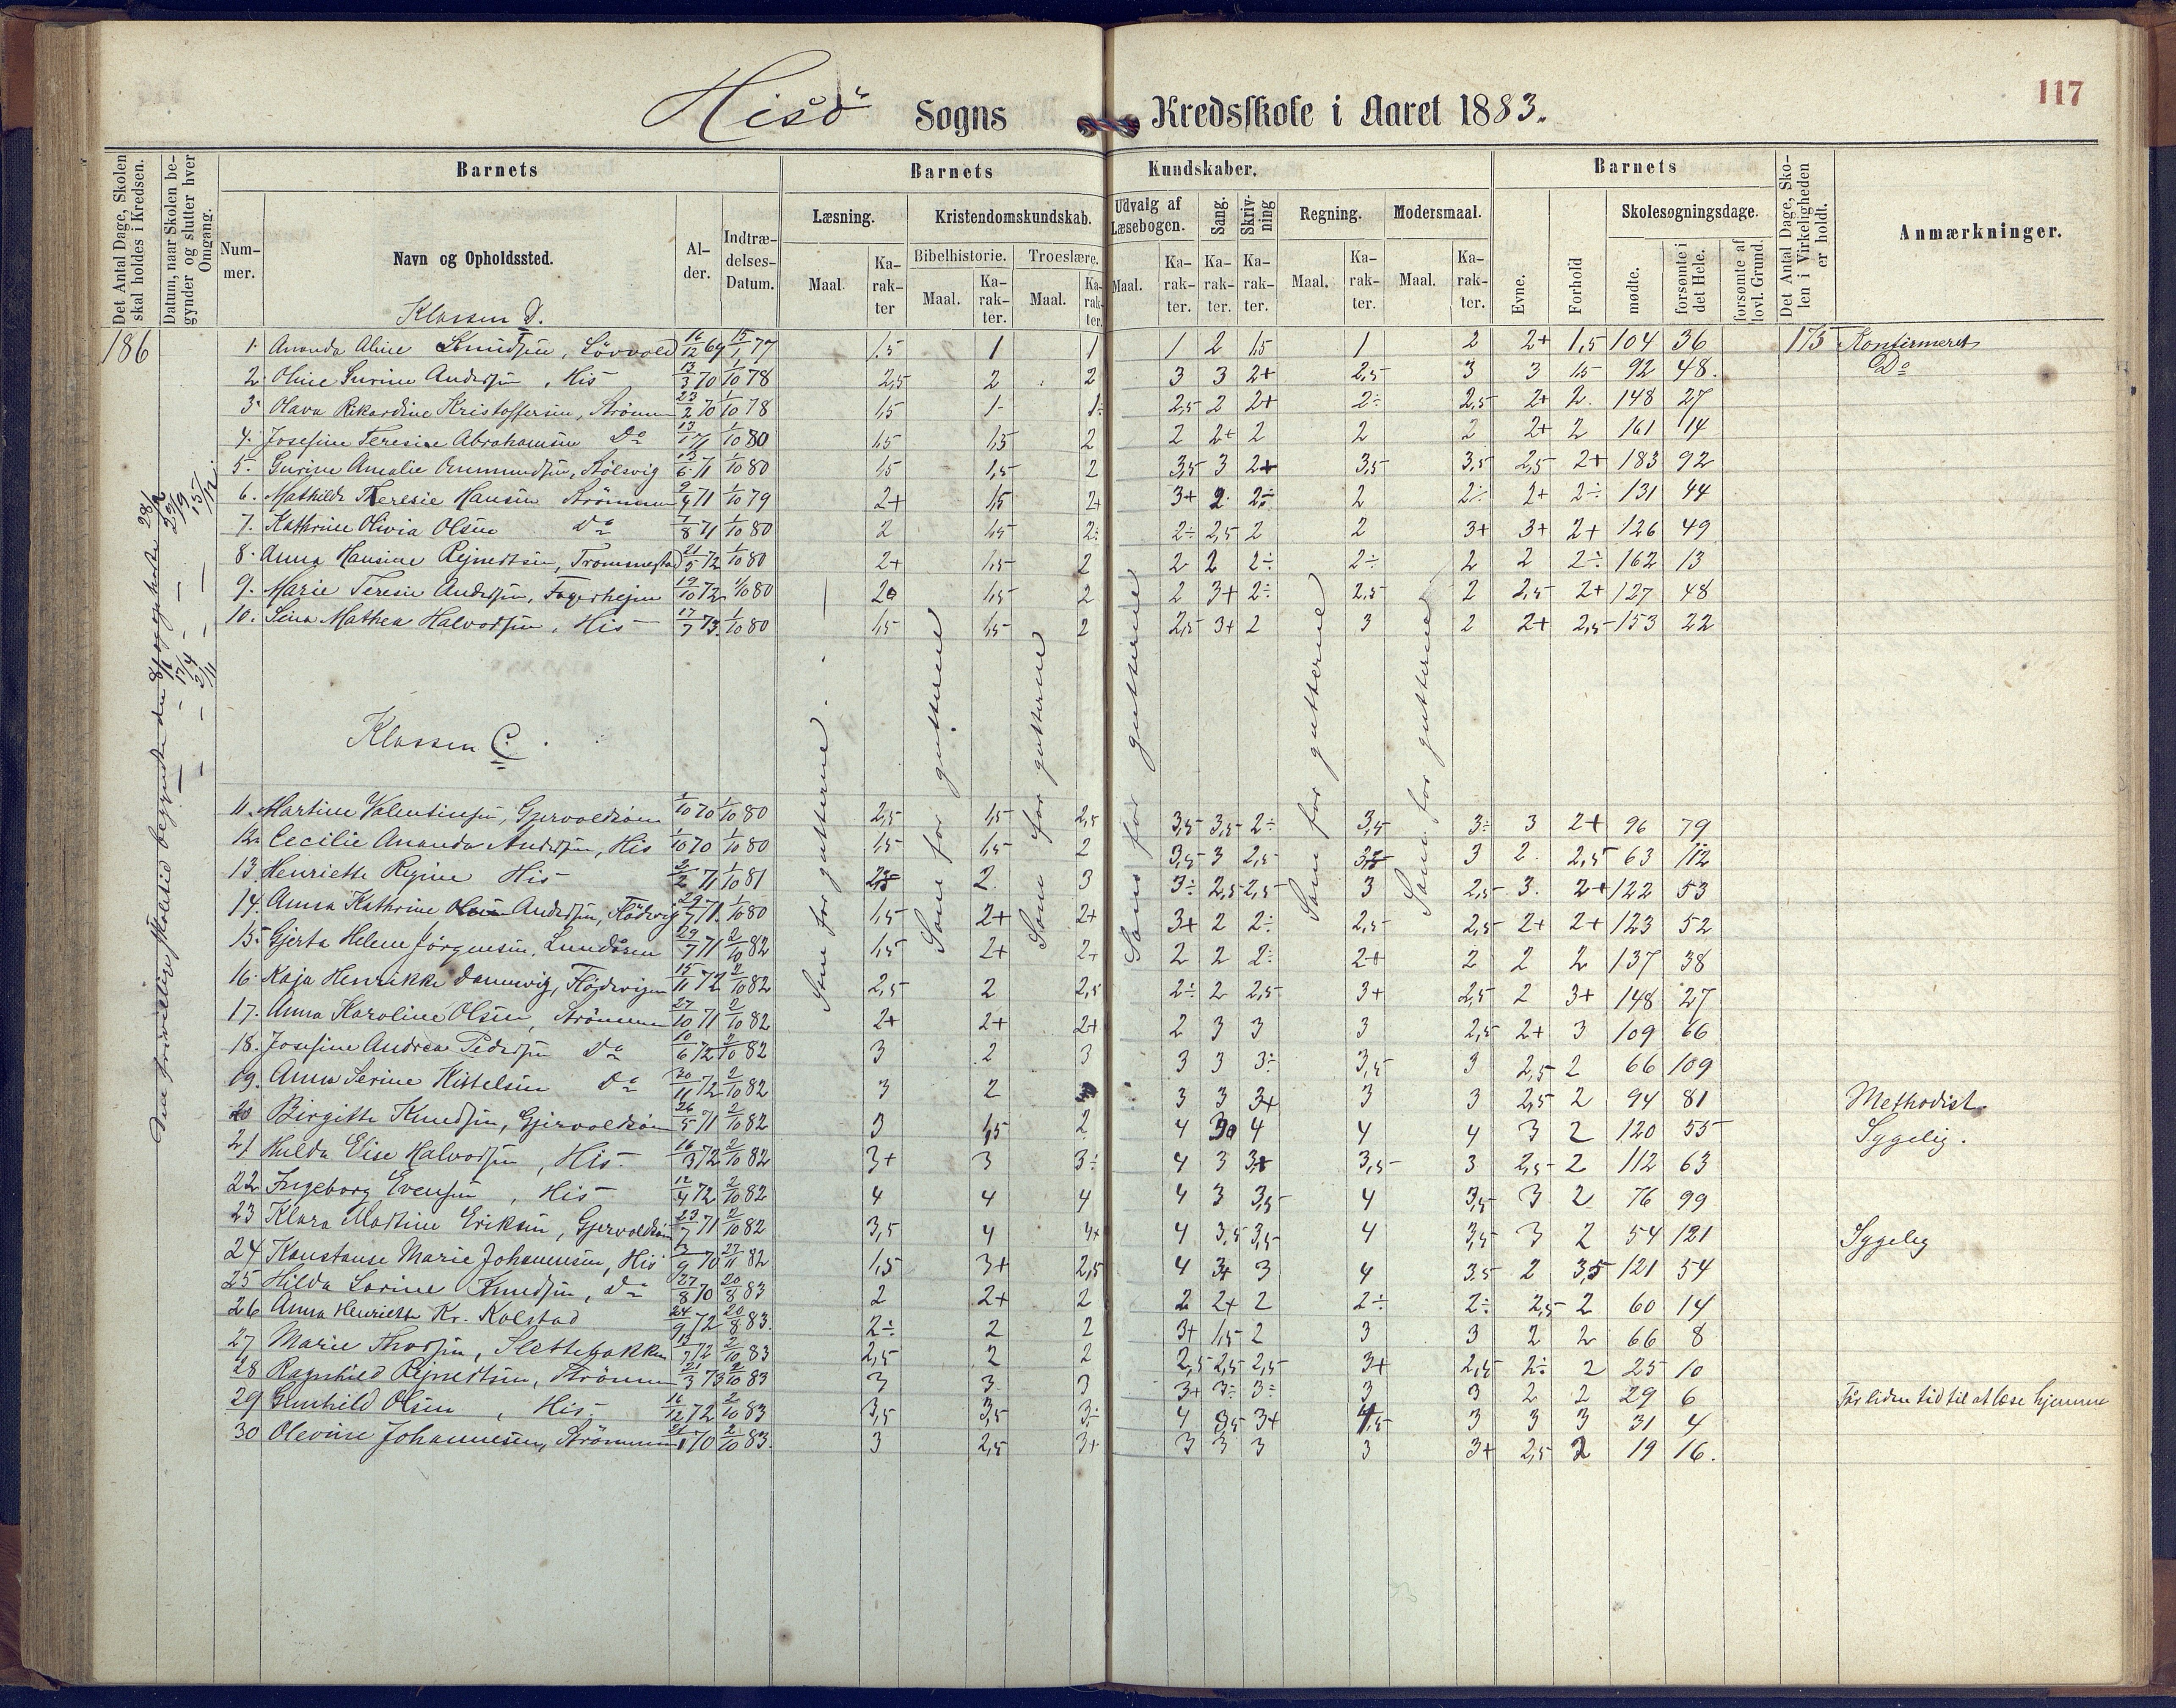 117
Hisö Sogns Kredsskole i Aaret 1883.
Det Antal Dage, Skolen skal holdes i Kredsen.
Datum, naar Skolen begynder og slutter hver Omgang.
Barnets
Barnets Kundskaber.
Barnets
Det Antal Dage, Skolen i Virkeligheden er holdt.
Anmærkninger.
Nummer.
Navn og Opholdssted.
Alder.
Indtrædelses-Datum.
Læsning. Kristendomskundskab. Udvalg af Læsebogen. Sang. Skrivning Regning. Modersmaal.
Evne. Forhold Skolesøgningsdage.
Bibelhistorie. Troeslære.
Maal. Karakter Maal. Karakter. Maal. Karakter. Maal. Karakter. Karakter. Karakter. Maal. Karakter. Maal. Karakter.
mødte. forsømte i det Hele. forsømte af lovl. Grund.
Klassen D.
186
1. Ananda Aline Knudsen, Lövvold 16/12 69 15/1 77 1.5 1 1 1 2 1,5 1 2 2+ 1,5 104 36 175 Konfirmeret
2. Oline Gurine Andersen, His 13/3 70 1/10 78 2,5 2 2 3 3 2+ 2,5 3 3 1,5 92 48. Do
3. Olava Rikardine Kristoffersen, Strömm 23/2 70 1/10 78 1,5 1 1÷ 2,5 2 2+ 2÷ 2,5 2+ 2. 148 27
4. Josefine Teresie Abrahamsen Do 13/1 71 1/10 80 1,5 1,5 2 2 2+ 2 2 2 2+ 2 161 14
5. Gurine Amalie Ommundsen, Stölsvig 13/6 71 1/10 80 1,5 1,5 2 3,5 3 2+ 3,5 3,5 2,5 2+ 183 92
6. Mathilde Theresie Hansen Strömmen 9/4 71 1/10 79 2+ 1,5 2+ 3+ 2 2÷ 2 2÷ 2+ 2÷ 131 44
7. Kathrine Olivia Olsen Do 7/8 71 1/10 80 2 1,5 2÷ 2÷ 2,5 2 2 3+ 3+ 2+ 126 49
8. Anna Hansine Rejnertsen, Trommestad 21/5 72 1/10 80 2+ 1,5 2 2 2 2÷ 2÷ 2 2 2÷ 162 13
9. Marie Teresie Andersen, Fagerhejm 19/10 72 1/10 80 2 1,5 2 2 3+ 2÷ 2,5 2 2,5 2+ 127 48
10. Lina Mathea Halvorsen, His 17/7 73 1/10 80 1,5 1,5 2 2,5 3+ 2 3 2 2+ 2,5 153 22
Klassen C.
Som for gutterne.
Som for gutterne
Som for gutterne
Som for gutterne
Som for gutterne
Som for gutterne
11. Martine Valentinsen, Gjervoldsöen 1/10 70 1/10 80 2,5 1,5 2,5 3,5 3,5 2÷ 3,5 3÷ 3 2+ 96 79
12. Cecilie Ananda Andersen, His 1/10 70 1/10 80 1,5 1,5 2 3,5 3 2,5 3 2. 2,5 63 112
13. Henriette Regine His 2/2 71 1/10 81 2,5 2. 3 3÷ 2,5 2,5 3 2,5 3. 2+ 122 53
14. Anna Kathrine Andersen, Flödevig 29/7 71. 1/10 80 1,5 2+ 2+ 3+ 2 2÷ 2,5 2,5 2+ 2+ 123 52
15. Gjerta Helene Jörgensen, Lundåsen 29/7 71 2/10 82 1,5 2+ 2+ 2 2 2÷ 2+ 2 2 2 137 38
16. Kaja Henrikke Dannevig, Flödevigen 15/11 72 2/10 82 2,5 2 2,5 2÷ 2 2,5 3+ 2,5 2 3+ 148 27
17. Anna Karoline Olsen, Strömmen 27/10 71 2/10 82 2+ 2+ 2+ 2 3 3 3 2,5 2+ 3 109 66
18. Josefine Andrea Pedersen Do 10/6 72 2/10 82 3 2 3 3 3 3÷ 3,5 3 2,5 2 66 109
19. Anna Serine Kittelsen Do 30/11 72 2/10 82 3 2 3 3 3+ 3 3 2,5 2 94 81 Methodist.
20 Birgitte Knudsen, Gjervoldsöen 26/5 71 2/10 82 3 1,5 2 4 3 4 4 4 3 2 120 55 Sygelig.
21 Hulda Elise Halvorsen, His 16/3 72 2/10 82 3+ 3 3÷ 4 3 3+ 3,5 3 2,5 2 112 63
22 Ingeborg Evensen, His 12/4 72 2/10 82 4 4 4 4 3 3,5 4 3,5 3 2 76 99
23 Klara Martine Eriksen, Gjervoldsöen 23/7 71 2/10 82 3,5 4 4+ 4 3,5 3,5 4 3,5 3 2 54 121 Sygelig
24 Konstanse Marie Johannesen, His 3/9 70 27/11 82 1,5 3+ 2,5 4 3+ 3 4 3.5 2 3,5 121 54
25 Hilda Lorine Knudsen, Do 27/8 70 20/8 83 2 2+ 2 2 2+ 2 2÷ 2÷ 2,5 2 60 14
26 Anna Henriette Kr. Kolstad 24/9 72 20/8 83. 2÷ 2 2 3+ 1,5 2 3 3 2 2 66 8
27 Marie Thorsen, Slettebakken 13/7 72 2/10 83 2,5 2 2 2,5 2,5 2,5 3+ 2,5 2÷ 2 25 10
28 Ragnhild Rejnertsen, Strömmen 21/3 73 2/10 83 3 3 3 3+ 3÷ 3÷ 3 3 2 2 29 6
29 Gunhild Olsen, His 16/12 72 2/10 83 3,5 3,5 3÷ 4 3,5 3+ 4,5 3 3 3 31 4 Får liden tid til at læse hjemme
30 Olevine Johannesen, Strömmen 70 2/10 83. 3 2,5 3+ 3 3 3 3 3+ 2,5 2 19 16.